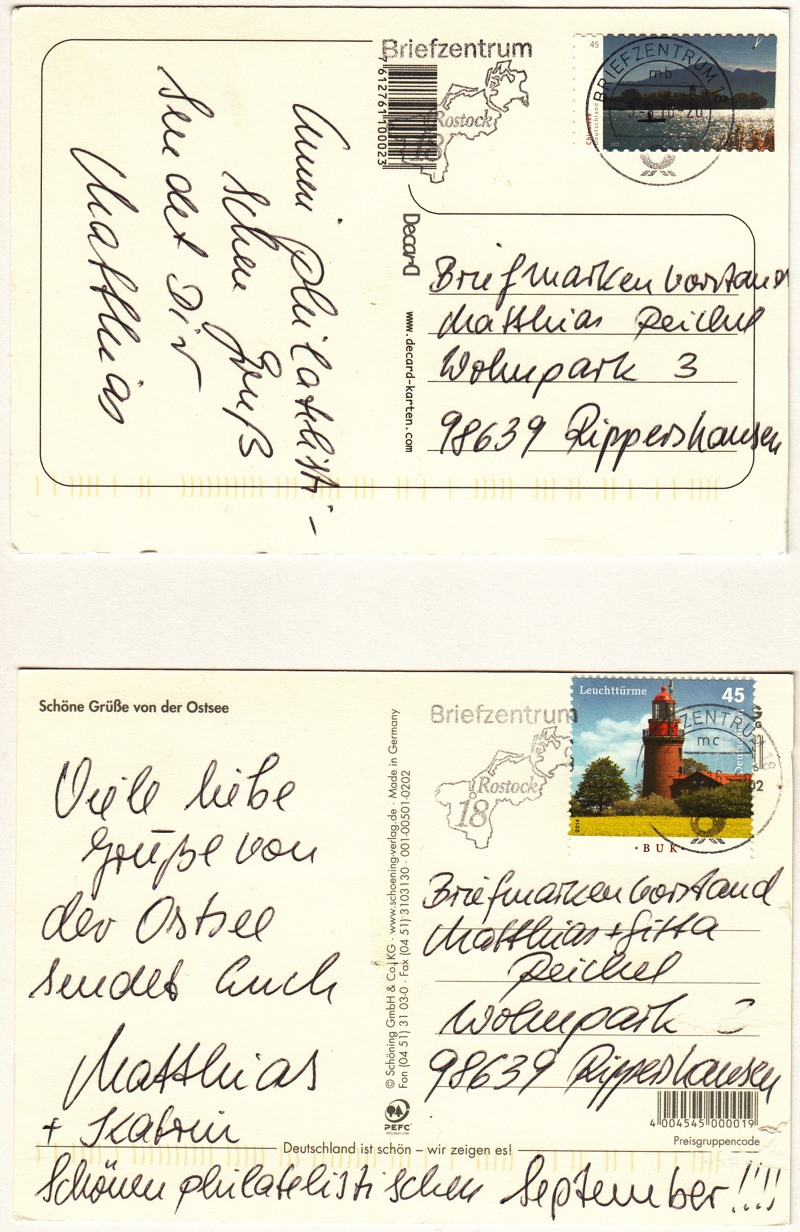 Briefzentrum
Rostock
18
7612761100023
45
Deutschland
BRIEFZENTRUM 18
mb
Einen philatelisti-
schen Gruß
sendet Dir
Matthias
Decard
www.decard-karten.com
Briefmarkenvorstand
Matthias Reichel
Wohnpark 3
98639 Rippershausen
Schöne Grüße von der Ostsee
Briefzentrum
Rostock
18
Leuchttürme 45
Deutschland
2014
BUK
mc
Viele liebe
Grüße von
der Ostsee
sendet Euch
Matthias
+ Katrin
© Schöning GmbH & Co. KG · www.schoening-verlag.de · Made in Germany
Fon (04 51) 31 03-0 · Fax (04 51) 3103130 · 001-00501-0202
PEFC
Briefmarkenvorstand
Matthias + Gitta
Reichel
Wohnpark 3
98639 Rippershausen
4 004545 000019
Preisgruppencode
Deutschland ist schön – wir zeigen es!
Schönen philatelistischen September!!!!